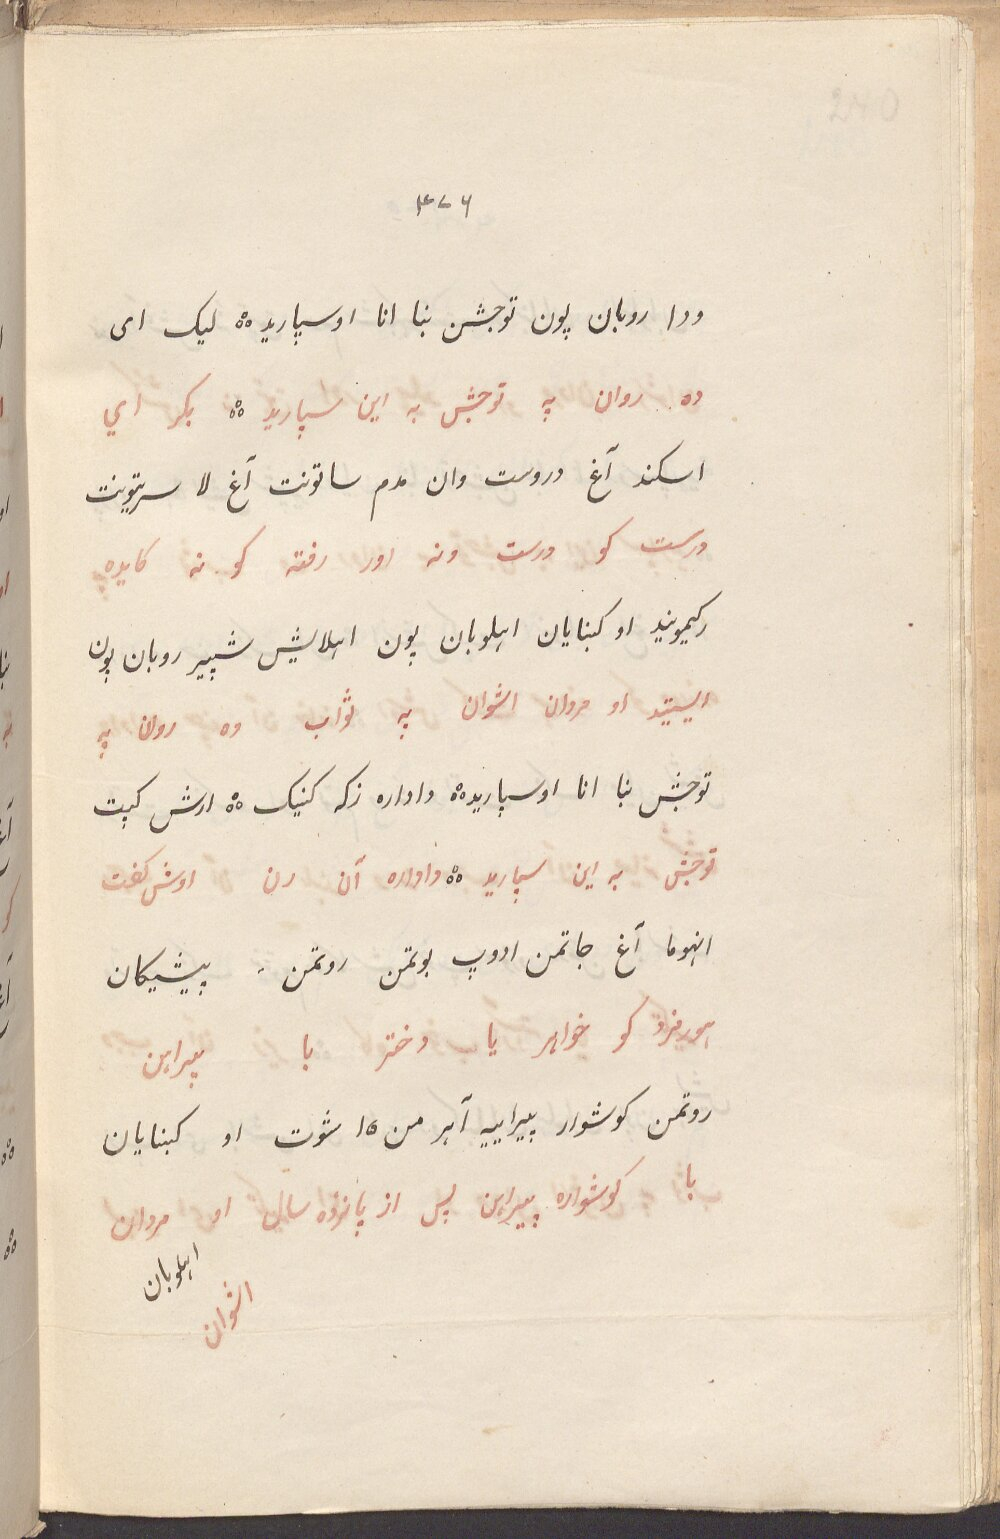 ۴۷۶
ودا روبان پون توجشن بنا انا اوسپارید لیک ای
ده روان په توجش به این سپارید بکر اي
اسکند آغ دروست وان مدم ساتونت آغ لا سریتونت
درست کو درست ونه اور رفته کو نه کایده
رکیمونید او کبنایان اهلوبان پون اهلایش شپیر روبان پون
ایستید او مردان اشوان په ثواب وه روان په
توجش بنا انا اوسپارید داداره زکه کنیک ارش کپت
توجش به این سپارید داداره آن زن اوش کفت
انهوما آغ جاتمن ادوپ بوتمن روتمن پیشیکان
هورمزد کو خواهر یا دختر با پیراهن
روتمن کوشوار پیراییه آهر من ۱۵ شوت او کبنایان
با کوشواره پیراهن پس از پانزده سال او مردان
اهلوبان
اشوان